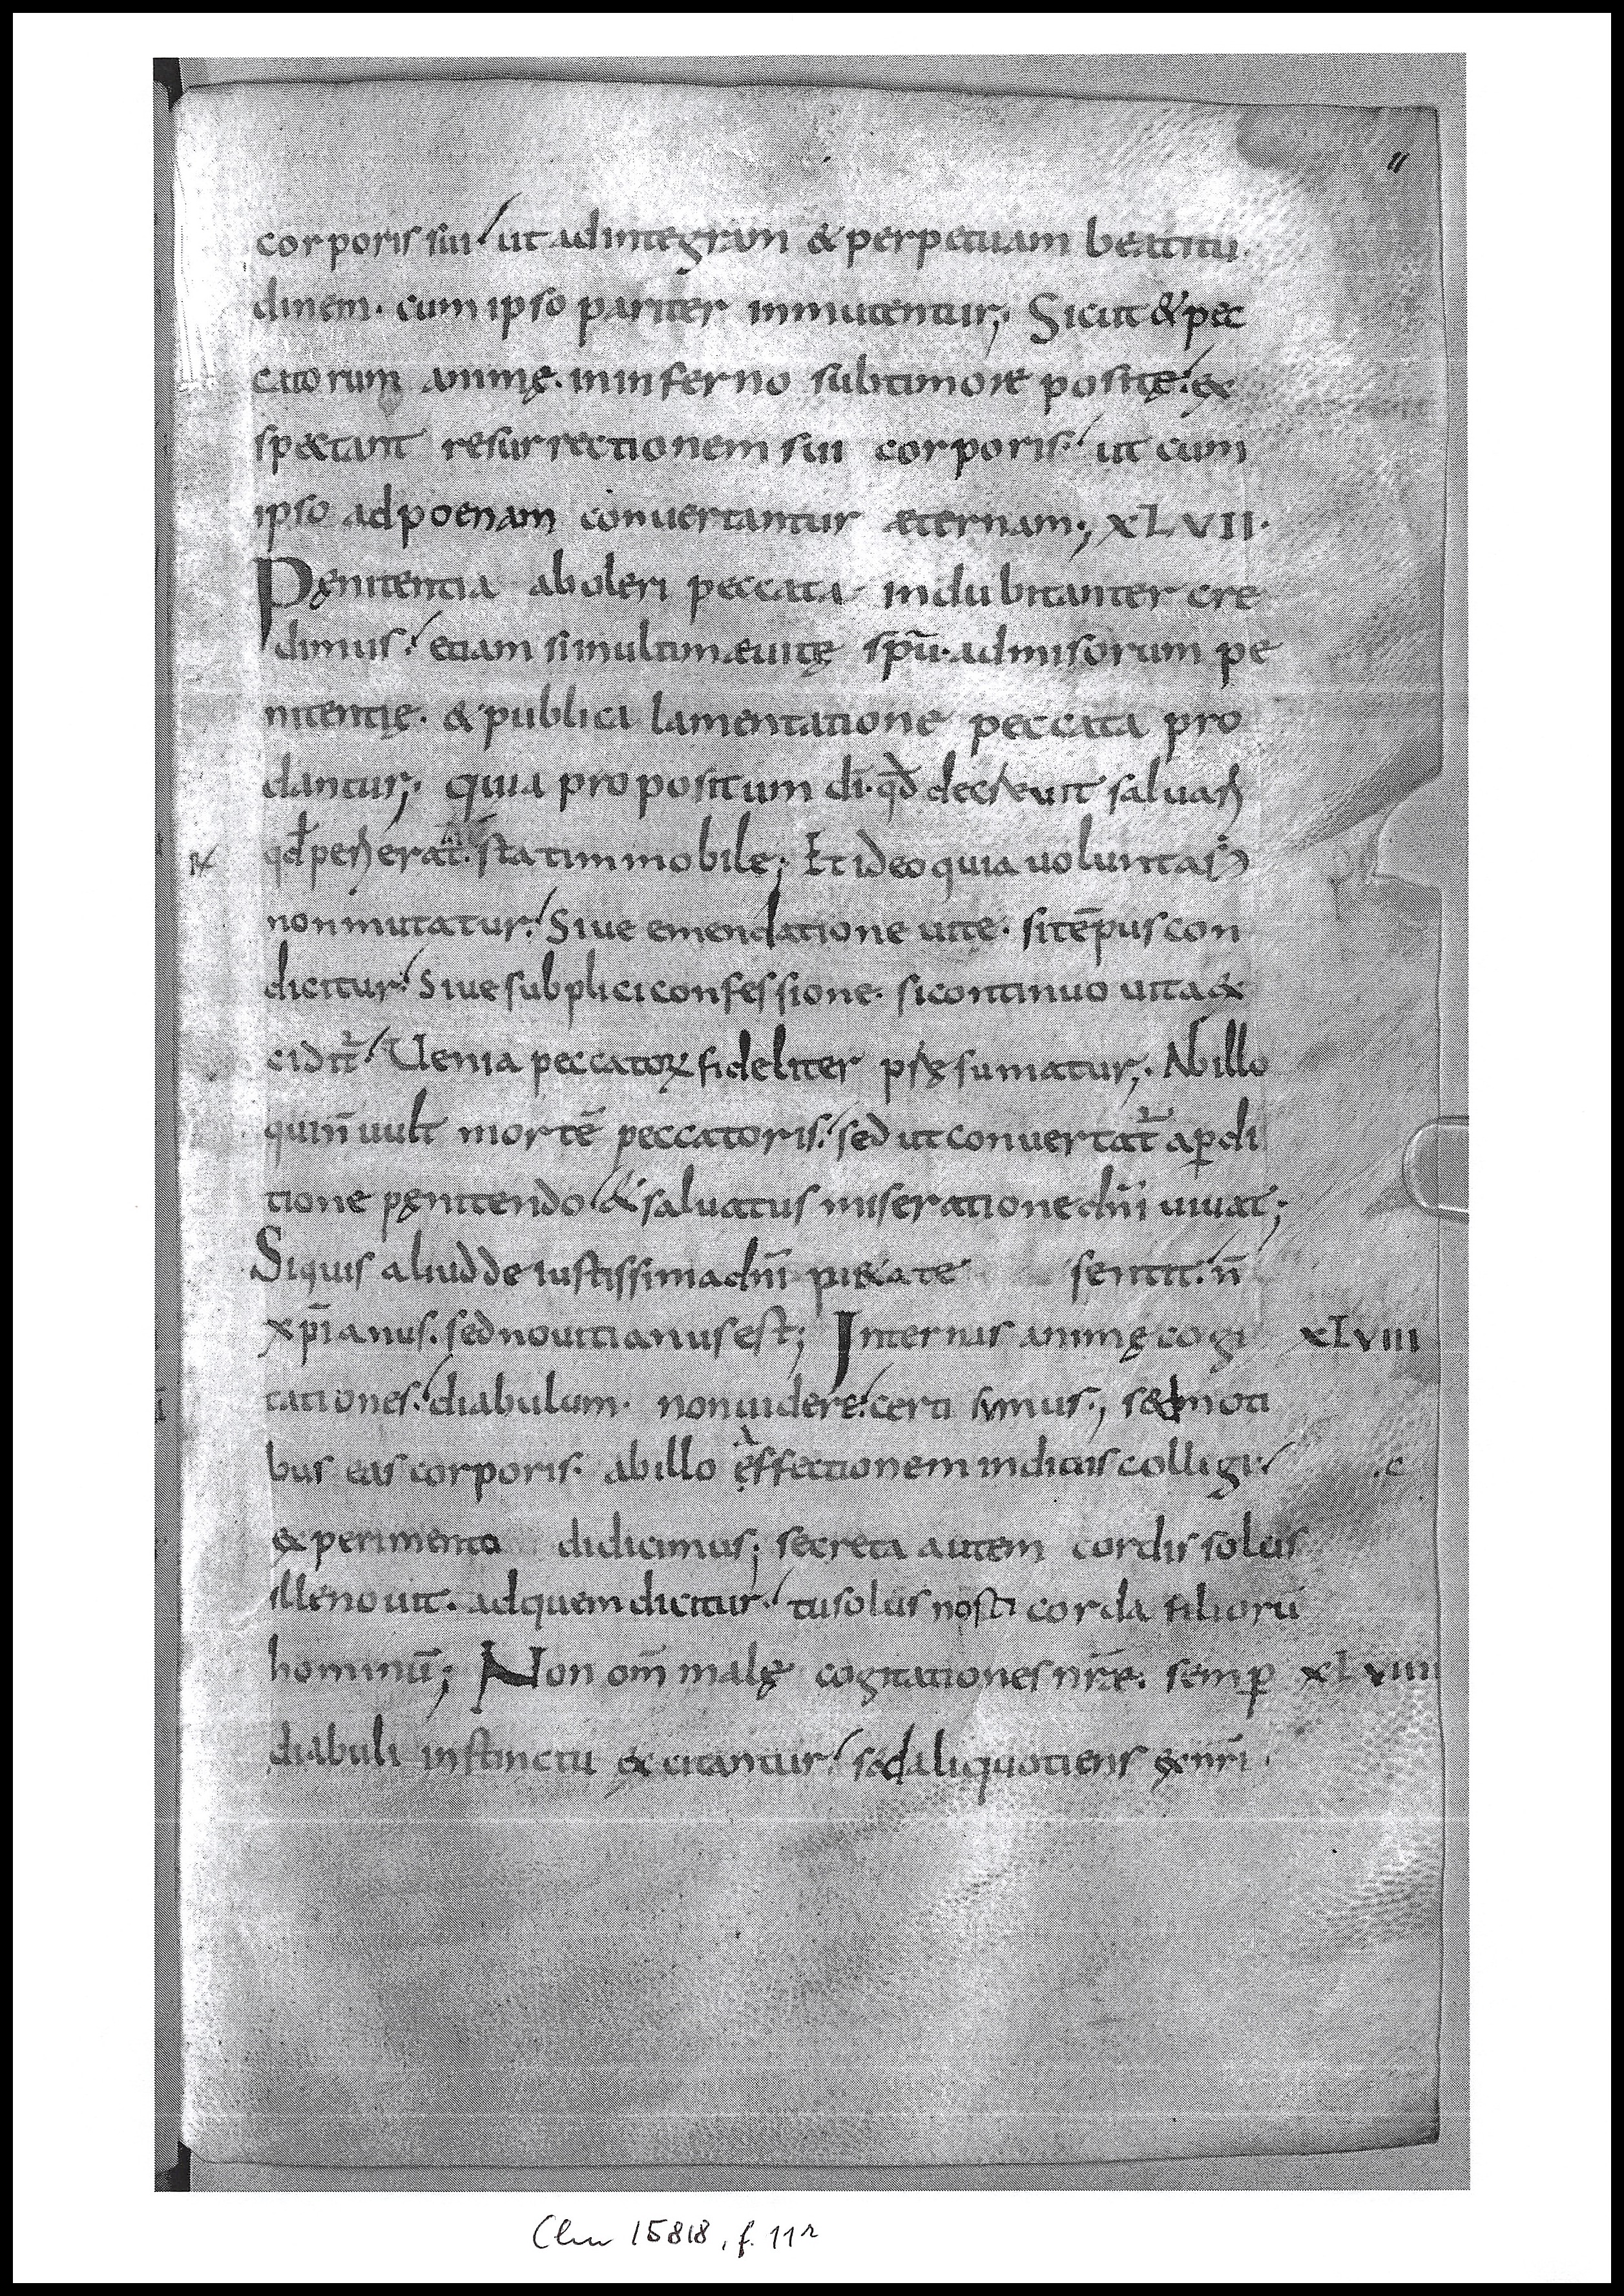 11
corporis sui ut ad integram & perpetuam beatitu
dinem· cum ipso pariter inmutentur;· Sicut & pec
catorum animę· in inferno sub timore positę· ex
spectant resurrectionem sui corporis· ut cum
ipso ad poenam convertantur æternam·; XLVII·
Pęnitentia aboleri peccata indubitanter cre
dimus· etiam si in ultimæ uitę spū· admisorum pe
nitentię· & publica lamentatione peccata pro
dantur;· quia propositum dī· qđ decreuit saluare
qđ perierat· stat inmobile; Et ideo quia uoluntas
non mutatur· Siue emendatione uite· si tēpus con
dicitur· Siue subplici confessione· si continuo uita ex
cidit̄· Uenia peccatorum fideliter pręsumatur;· Ab illo
qui n̄ uult mortē peccatoris· sed ut convertat̄ a pdi
tione pęnitendo & saluatus miseratione dn̄i uiuat;
Siquis aliud de iustissima dn̄i pietate sentit· n̄
xp̄ianus· sed nouitianus est; Internas animę cogi XLVIII
tationes· diabulum· non uidere· certi sumus·, sed moti
bus eas corporis· ab illo & effectionem indiciis colligi·
experimento didicimus; secreta autem cordis solus
ille nouit· ad quem dicitur· tu solus nosti corda filiorū
hominū; Non om̄ malę cogitationes nr̄æ· semp XLVIIII
diabuli instinctu excitantur· sed aliquotiens ex nr̄i·
Clm 15818, f. 11r